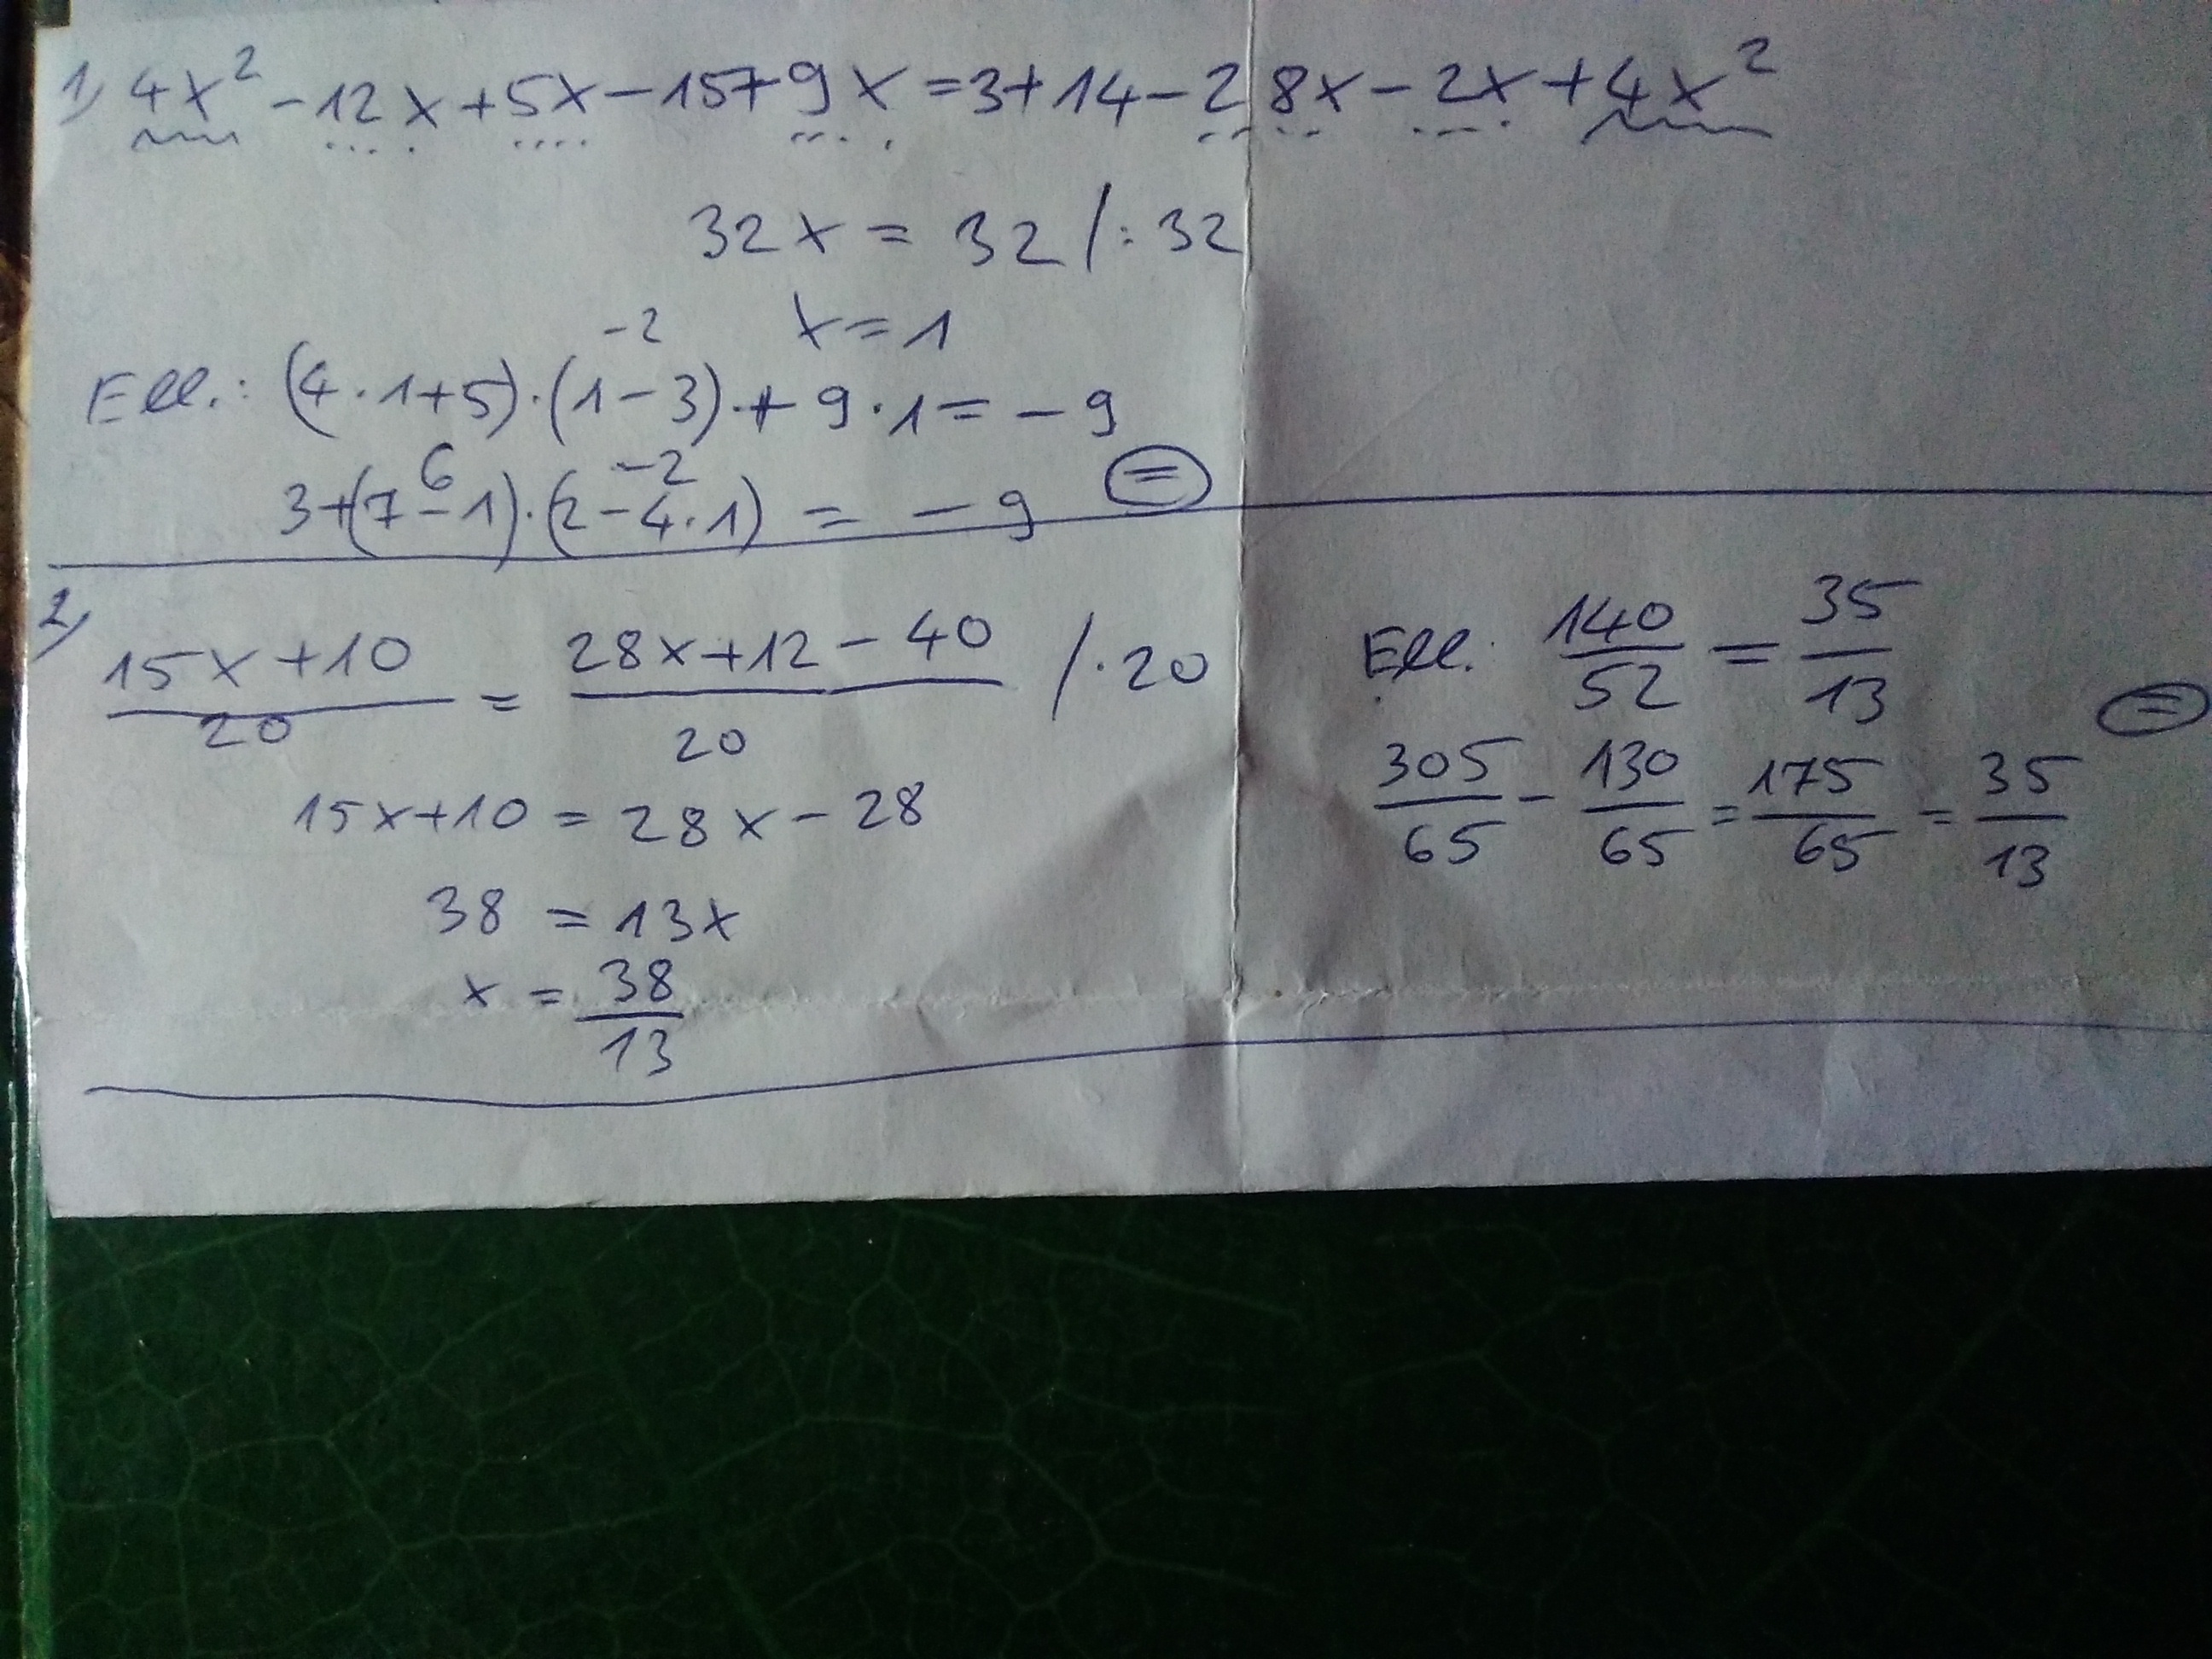 1) 4x² - 12x + 5x - 15 + 9x = 3 + 14 - 28x - 2x + 4x²
32x = 32 / : 32
x = 1
-2
Ell.: (4 · 1 + 5) · (1 - 3) · + 9 · 1 = - 9
6 -2 =
3 + (7 - 1) · (2 - 4 · 1) = - 9
2)
15x + 10 / 20 = 28x + 12 - 40 / 20 / · 20
15x + 10 = 28x - 28
38 = 13x
x = 38 / 13
Ell. 140 / 52 = 35 / 13
=
305 / 65 - 130 / 65 = 175 / 65 = 35 / 13